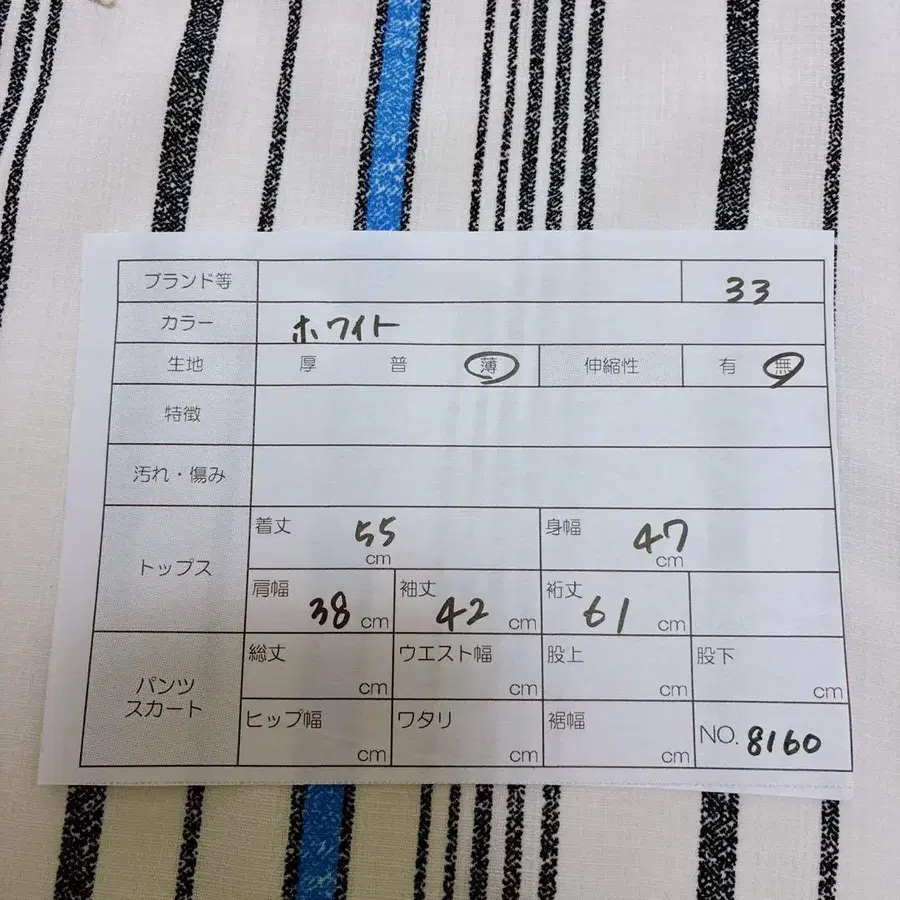 ブランド等 33
カラー ホワイト
生地 厚 普 薄 伸縮性 有 無
特徴
汚れ・傷み
トップス 着丈 55 cm 身幅 47 cm
肩幅 38 cm 袖丈 42 cm 裄丈 61 cm
パンツ スカート 総丈 cm ウエスト幅 cm 股上 cm 股下 cm
ヒップ幅 cm ワタリ cm 裾幅 cm NO. 8160